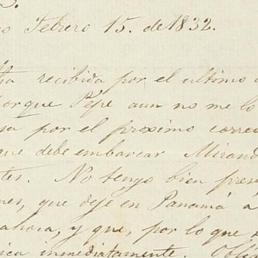 o Febrero 15. de 1832.
ta recibida por el ultimo
orque Pepe aun no me lo
sa por el proximo correo
que debe embarcar Mirand
tes. No tengo bien pres
nes, que deje en Panamá a
ahora, y que, por lo que s
ica inmediatamente.